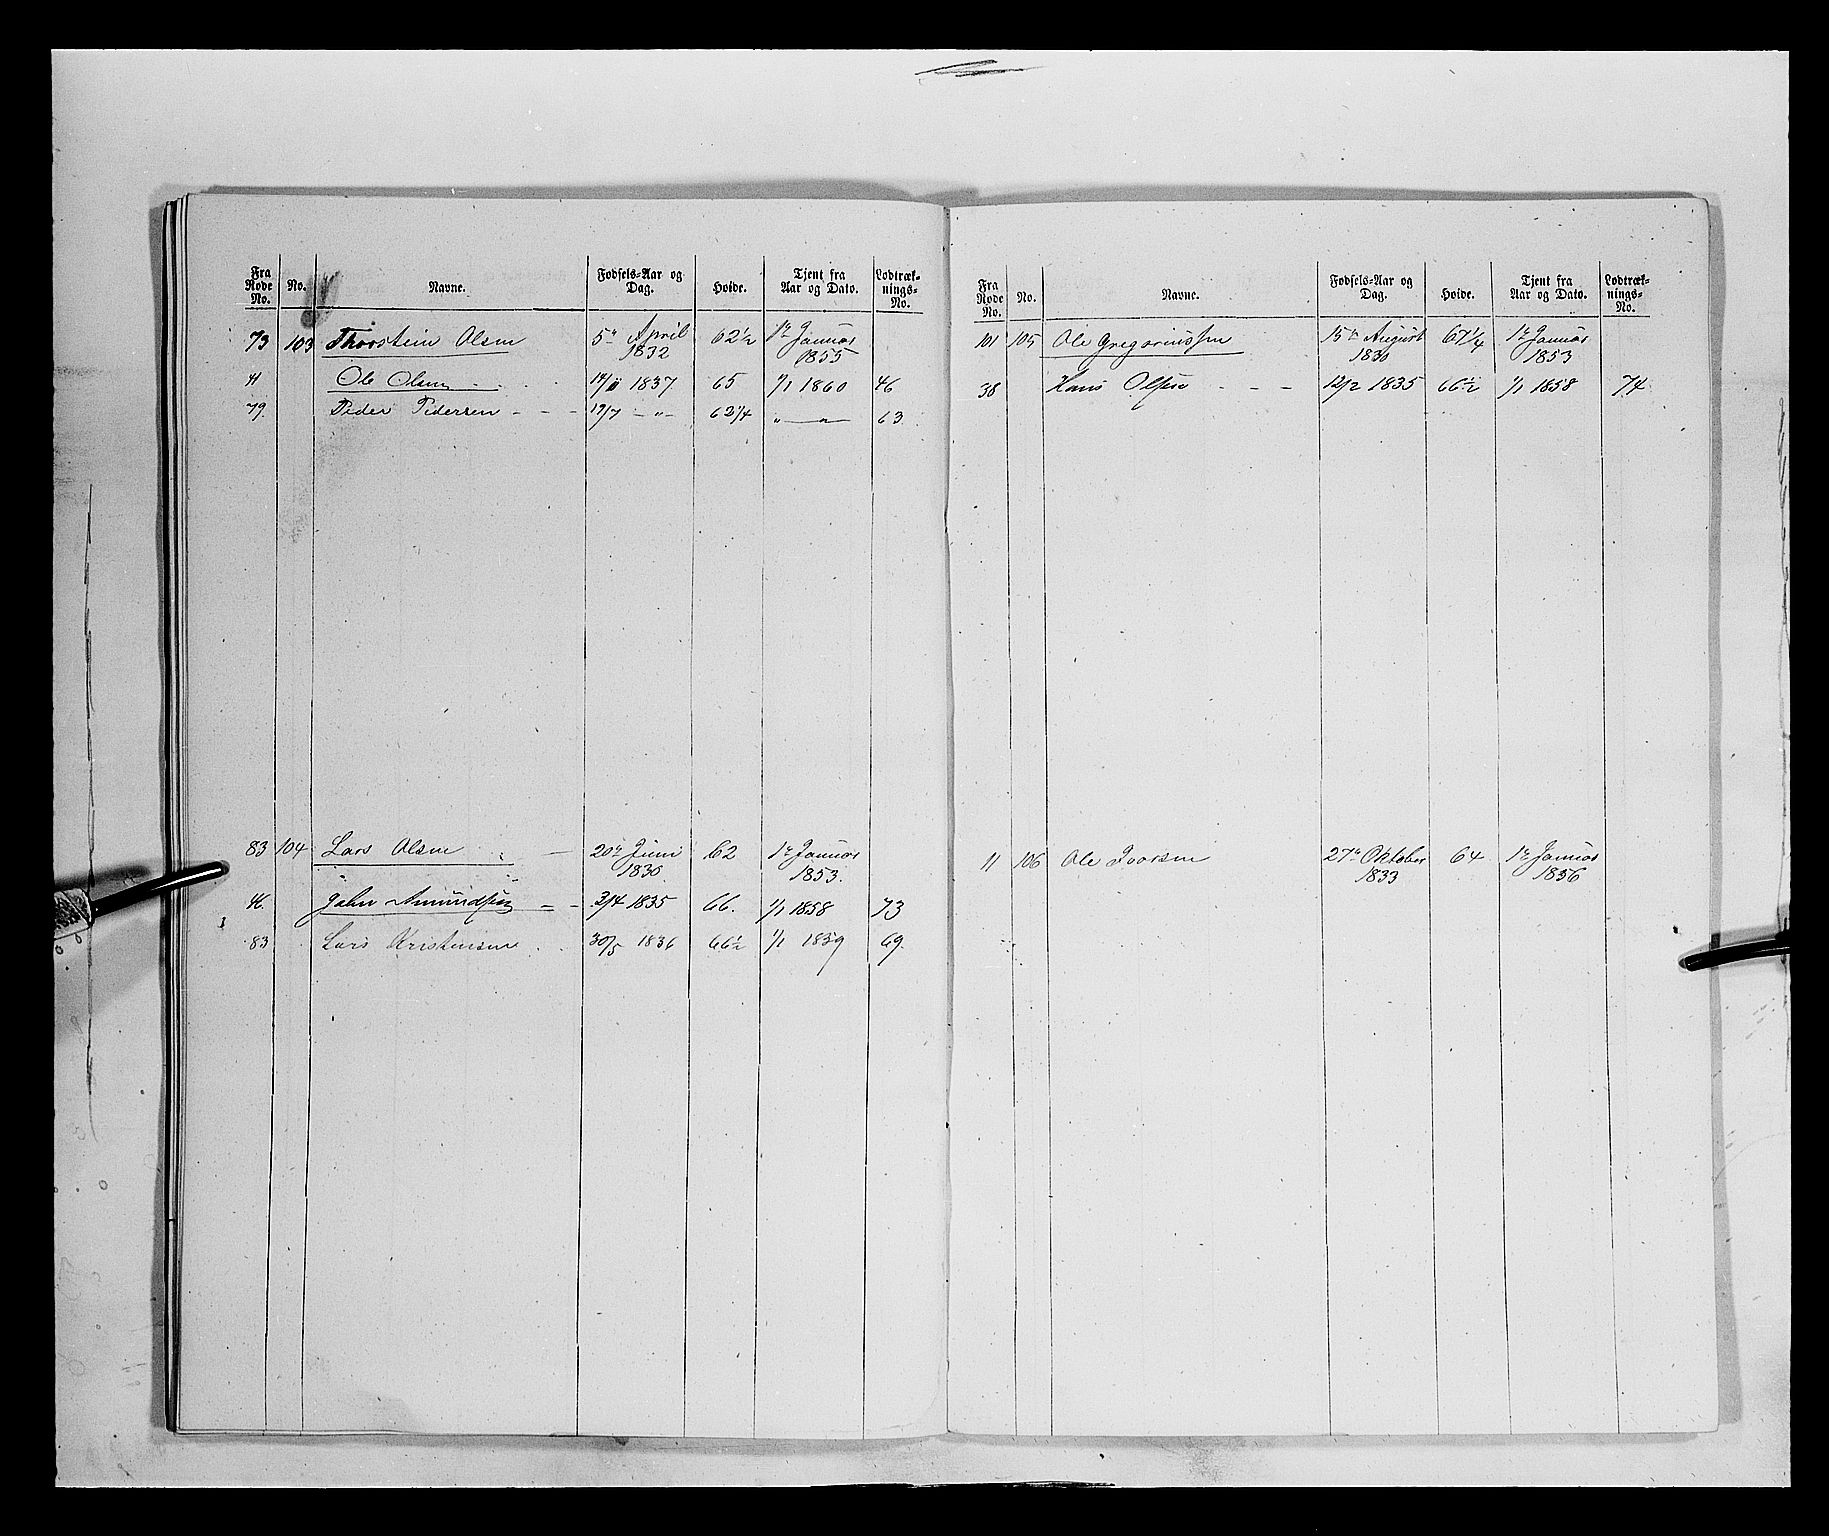 Fra Rode No. No. Navne. Fødsels-Aar og Dag. Høide. Tjent fra Aar og Dato. Lodtræk-nings-No.
73 103 Thorstein Olsen 5te April 1832 62½ 1ste Januar 1855
Ole Olsen 1837 65 1/1 1860 46
79. Peder Pedersen - - - 19/7 -"- 62¼ "—" 63
83 104 Lars Olsen — 20de Juni 1830. 62 1ste Januar 1853.
John Amundsen - - 2/4 1835 66. 1/1 1858 73
83 Lars Kristensen 30/5 1836 66½ 1/1 1859 69.
Fra Rode No. No. Navne. Fødsels-Aar og Dag. Høide. Tjent fra Aar og Dato. Lodtræk-nings-No.
101 105 Ole Gregoriussen 15de August 1830 67¼ 1ste Januar 1853
38 Hans Olsen - - - 12/2 1835 66½ 1/1 1858 74
11 106 Ole Ivarsen 27de Oktober 1833 64 1ste Januar 1856